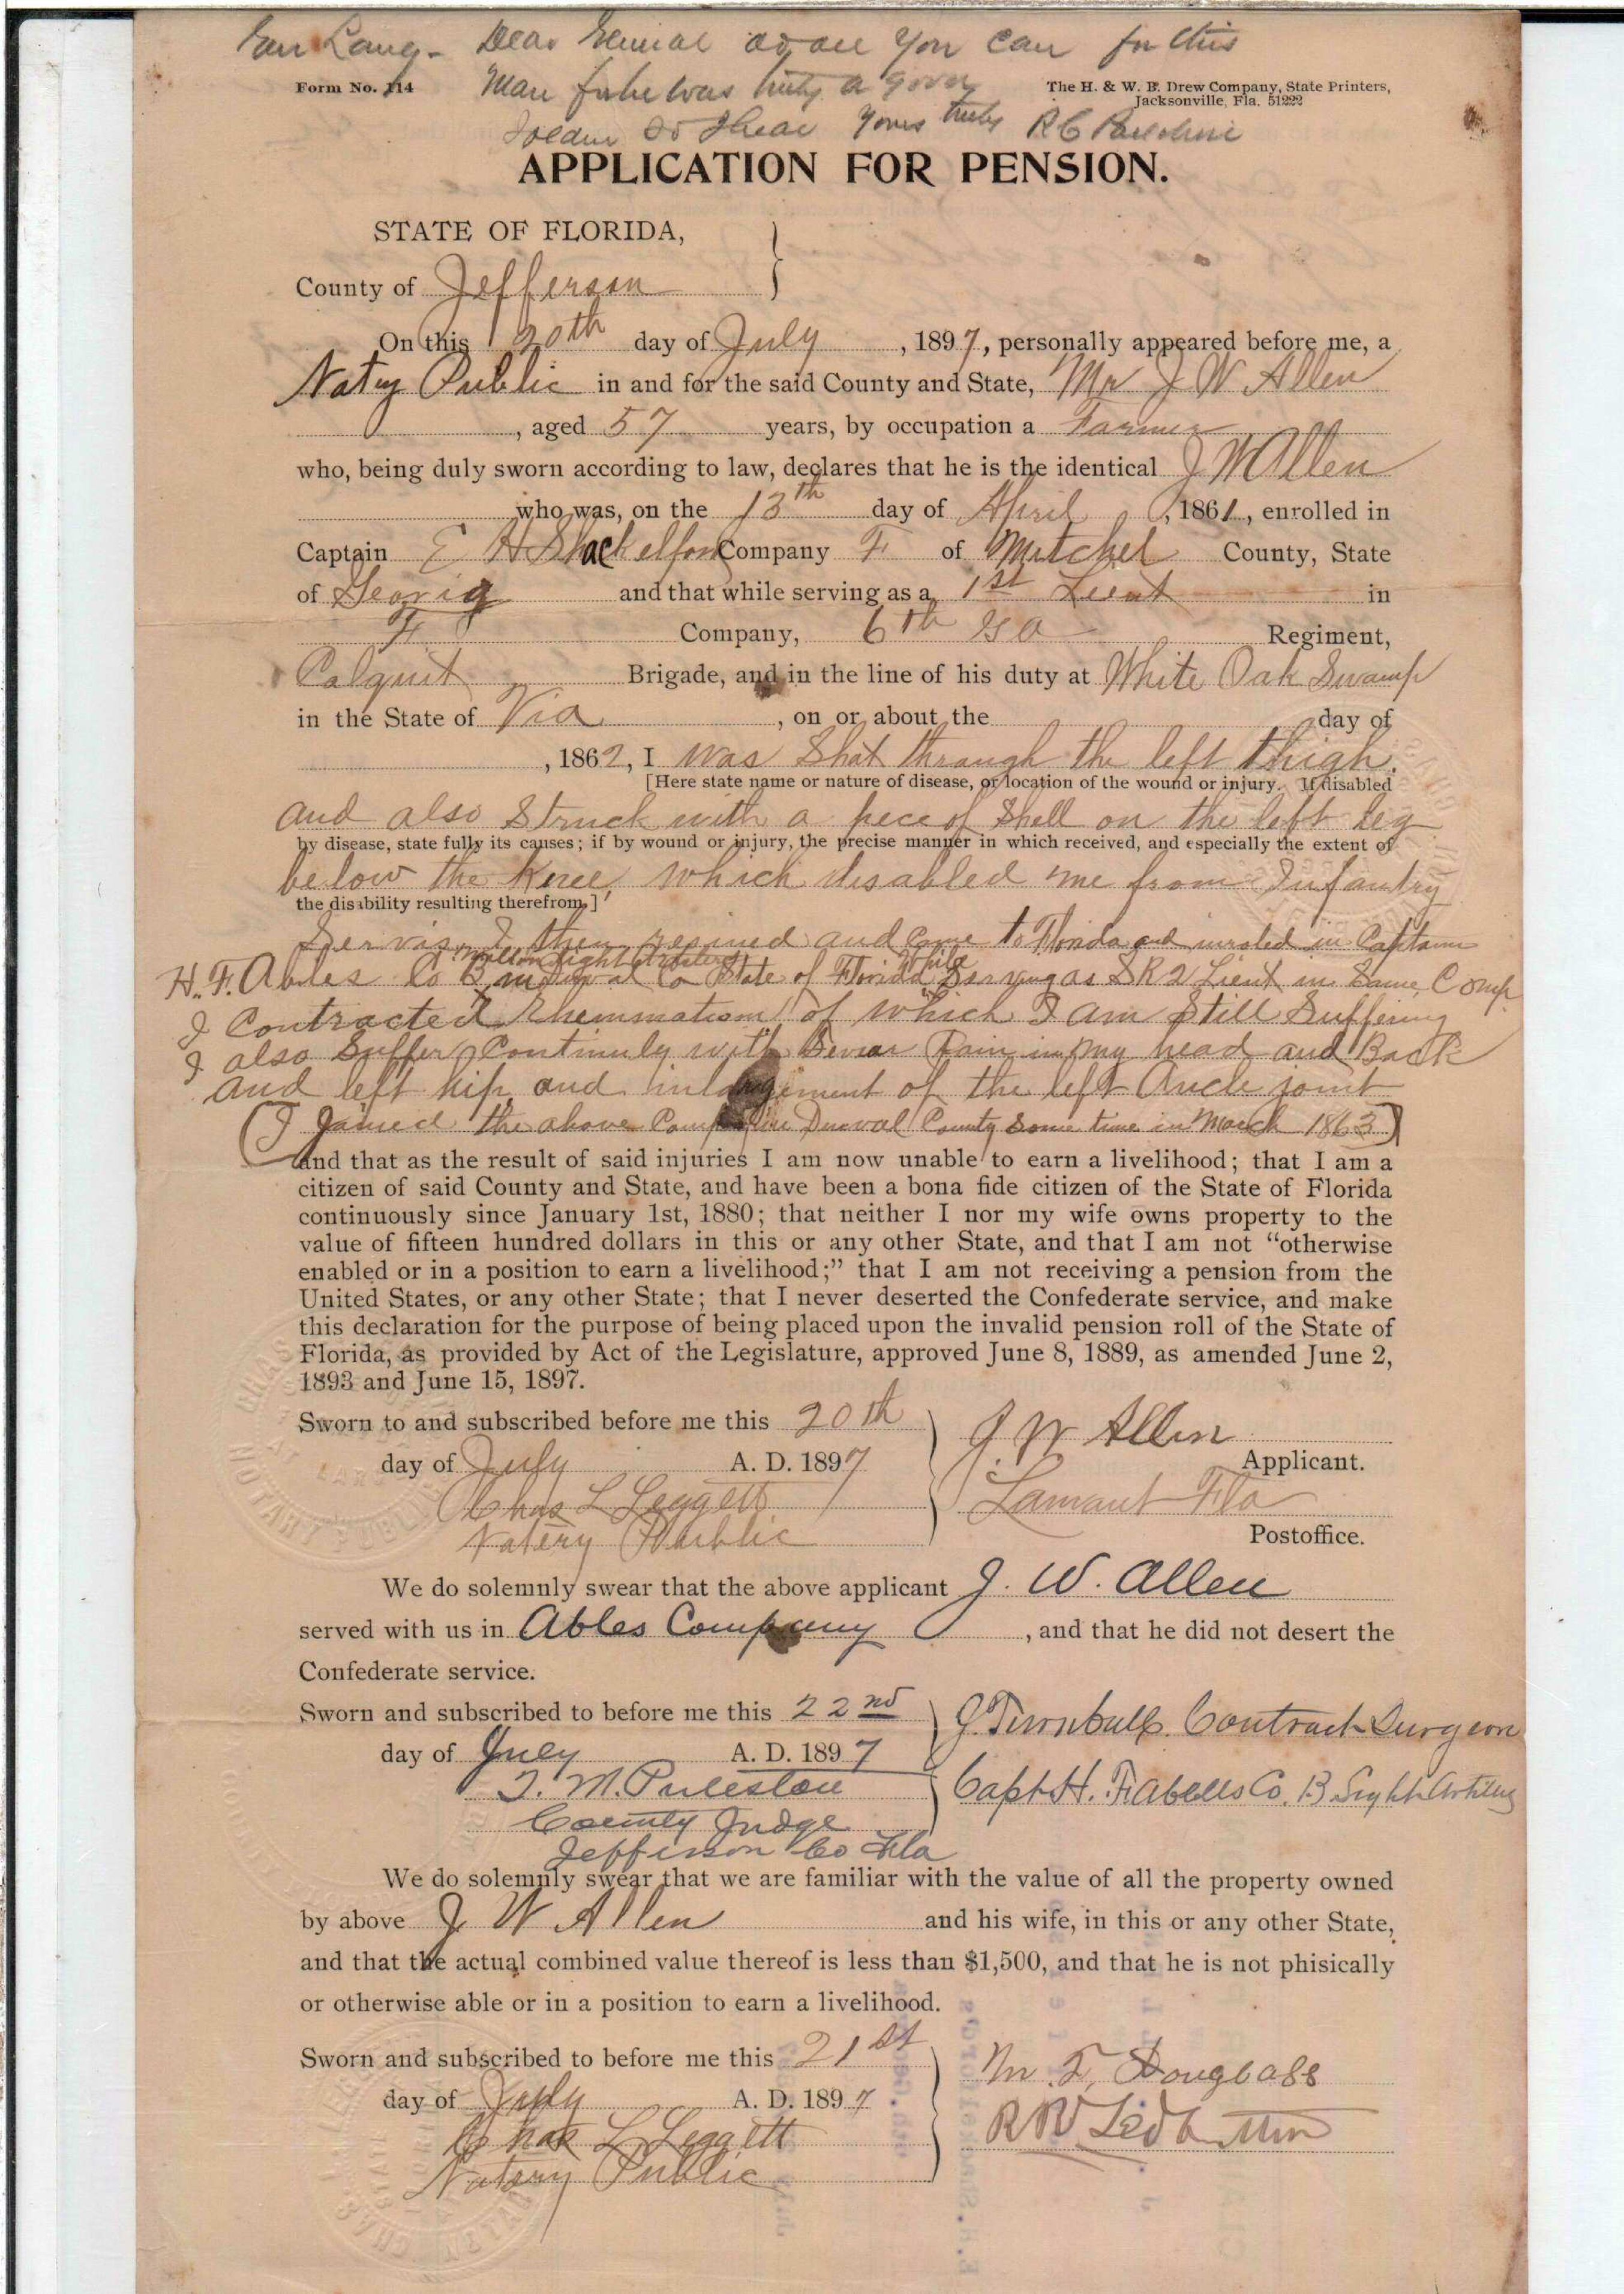 Dear General do all you can for this
Form No. 114
Man for he was truly a good
The H. & W. B. Drew Company, State Printers,
Jacksonville, Fla. 51222
Yours truly R C
APPLICATION FOR PENSION.
STATE OF FLORIDA,
County of Jefferson
On this 20th day of July, 1897, personally appeared before me, a
Notry Public in and for the said County and State, Mr J W Allen
, aged 57 years, by occupation a Farmer
who, being duly sworn according to law, declares that he is the identical J W Allen
who was, on the 13th day of April, 1861, enrolled in
Captain E H Shackelford Company F of Mitchel County, State
of Georig and that while serving as a 1st Lieut in
F Company, 6th Ga Regiment,
Colquit Brigade, and in the line of his duty at White Oak Swamp
in the State of Via, on or about the day of
, 1862, I was Shot through the left thigh.
[Here state name or nature of disease, or location of the wound or injury. If disabled
and also Struck with a pece of Shell on the left leg
by disease, state fully its causes; if by wound or injury, the precise manner in which received, and especially the extent of
below the Knee, which disabled me from Infantry
the disability resulting therefrom.]
Servis, I then resined and Come to Florida and inroled in Captain
Milton Light Artilery
H. F. Ables Co B in Duval Co State of Florida While Serving as SR 2 Lieut in Same Comp
I Contracted Rhemmatism of which I am Still Suffering
I also Suffer Continuly with Sevear Pain in my head and Back
and left hip and inlargement of the left Ancle joint
(I Joined the above Comp in Duval County Some time in March 1863)
and that as the result of said injuries I am now unable to earn a livelihood; that I am a
citizen of said County and State, and have been a bona fide citizen of the State of Florida
continuously since January 1st, 1880; that neither I nor my wife owns property to the
value of fifteen hundred dollars in this or any other State, and that I am not “otherwise
enabled or in a position to earn a livelihood;” that I am not receiving a pension from the
United States, or any other State; that I never deserted the Confederate service, and make
this declaration for the purpose of being placed upon the invalid pension roll of the State of
Florida, as provided by Act of the Legislature, approved June 8, 1889, as amended June 2,
1893 and June 15, 1897.
Sworn to and subscribed before me this 20th
J W Allen
day of July A. D. 1897
Applicant.
Chas L Leggett
Lamant Fla
Notery Public
Postoffice.
We do solemnly swear that the above applicant J. W. Allen
served with us in Ables Company, and that he did not desert the
Confederate service.
Sworn and subscribed to before me this 22nd
J. Turnbull. Contract Surgeon
day of July A. D. 1897
T. M. Puleston
Capt H. F. Abells Co. B Light Artilery
County Judge
Jefferson Co Fla
We do solemnly swear that we are familiar with the value of all the property owned
by above J W Allen and his wife, in this or any other State,
and that the actual combined value thereof is less than $1,500, and that he is not phisically
or otherwise able or in a position to earn a livelihood.
Sworn and subscribed to before me this 21st
M. F. Douglass
day of July A. D. 1897
R W Ledbetter
Chas L Leggett
Notery Public